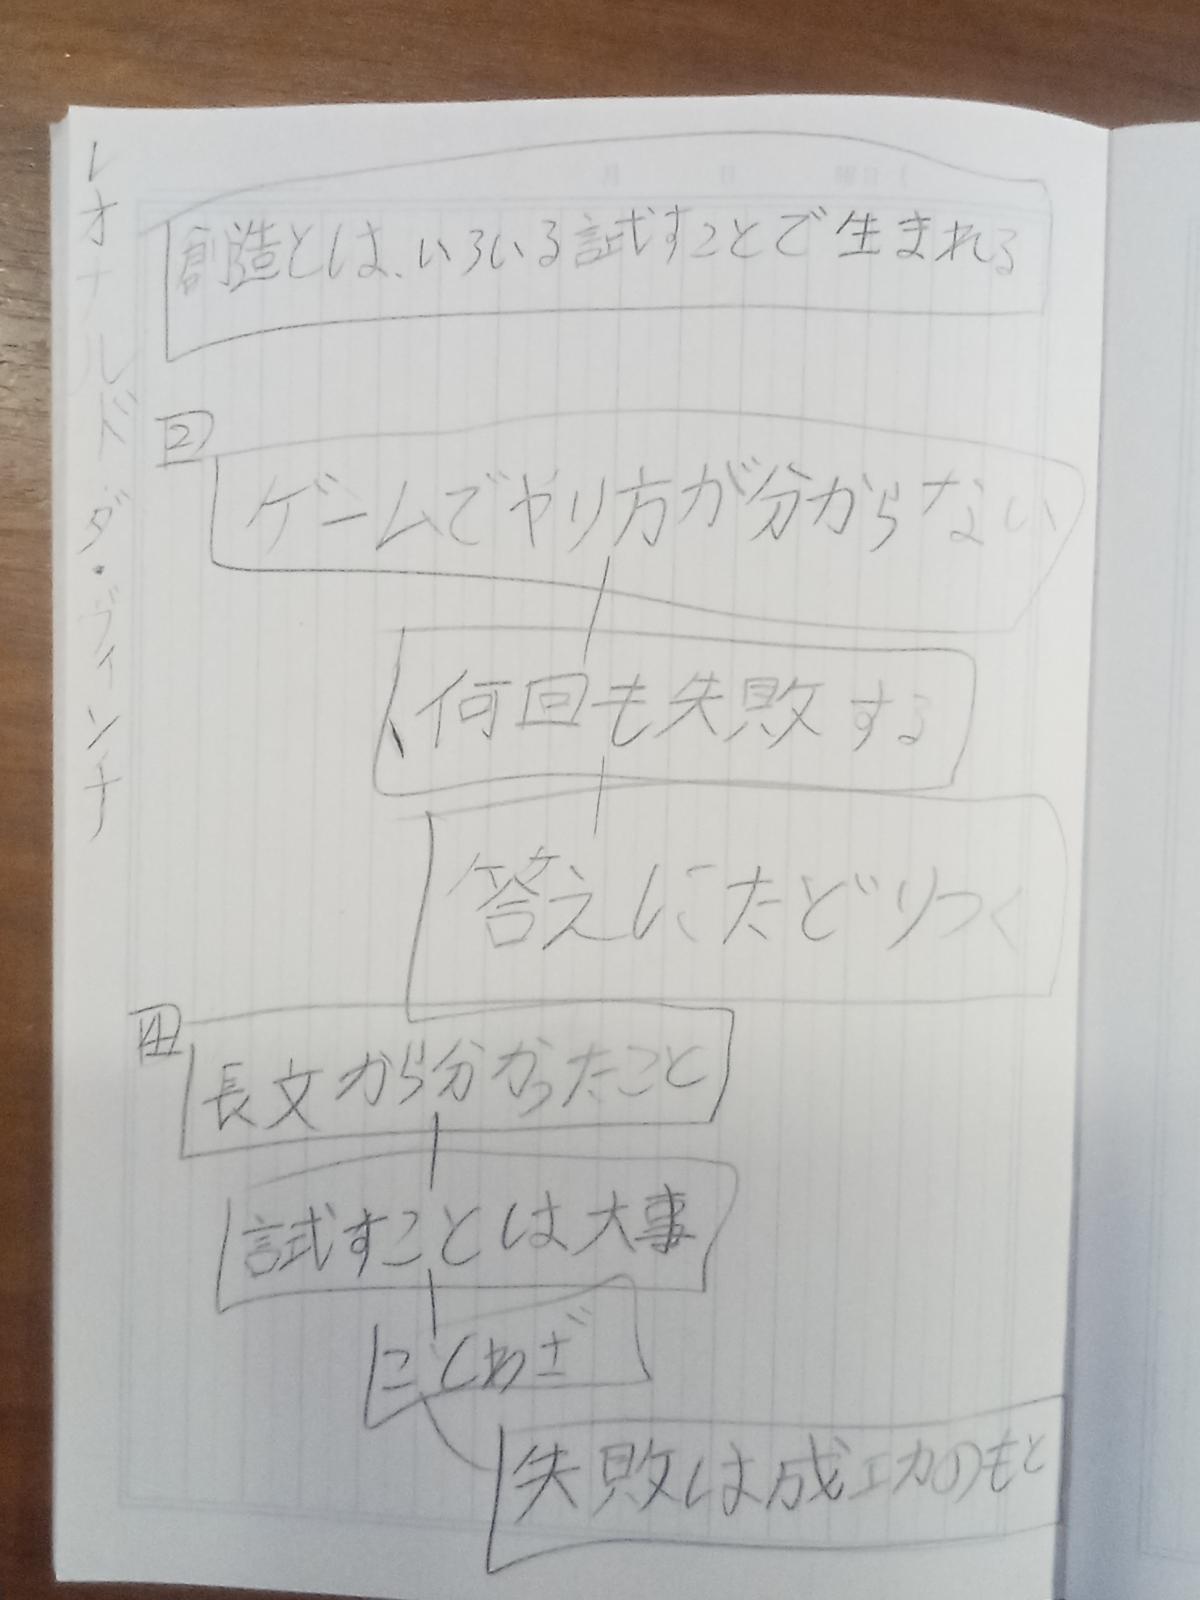 創造とは、いろいろ試すことで生まれる
レオナルド・ダ・ヴィンチ
2
ゲームでやり方が分からない
何回も失敗する
答えにたどりつく
4
長文から分かったこと
試すことは大事
ことわざ
失敗は成功のもと